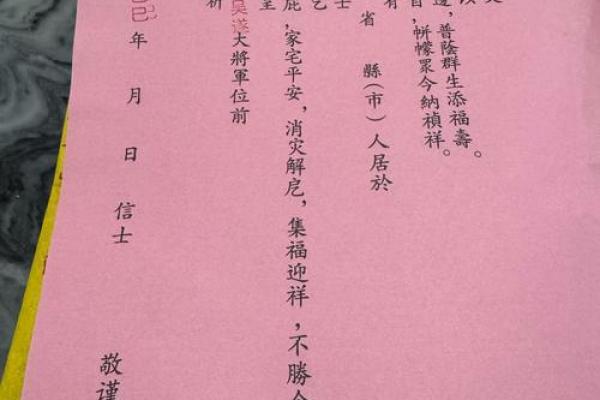 ，普蔭群生添福壽。
，帡幪眾今納禎祥。
有
省 縣（市）人居於
士
乞
庇，家宅平安，消灾解戹，集福迎祥，不勝
呈
吳遂大將軍位前
祈
巳年 月 日 信士 敬謹